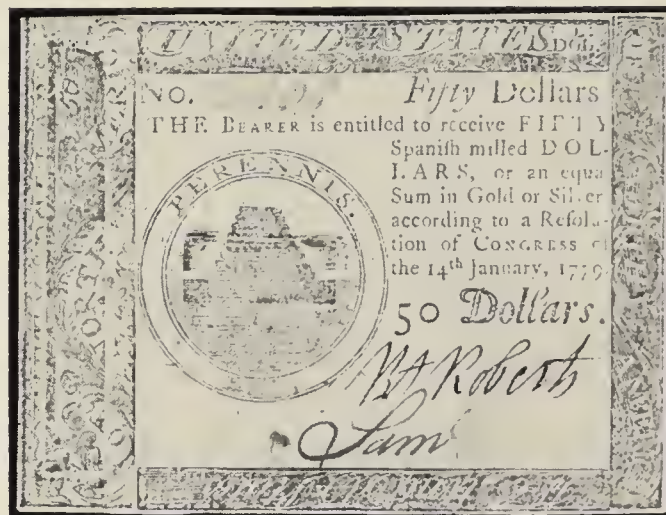 UNITED STATES DOL
NO. Fifty Dollars
THE BEARER is entitled to receive FIFTY
Spaniſh milled DOL-
LARS, or an equa
Sum in Gold or Silver
according to a Reſolu-
tion of CONGRESS of
the 14th January, 1779.
PERENNIS.
50 Dollars.
Roberts
Sam
NORTH AMERIC